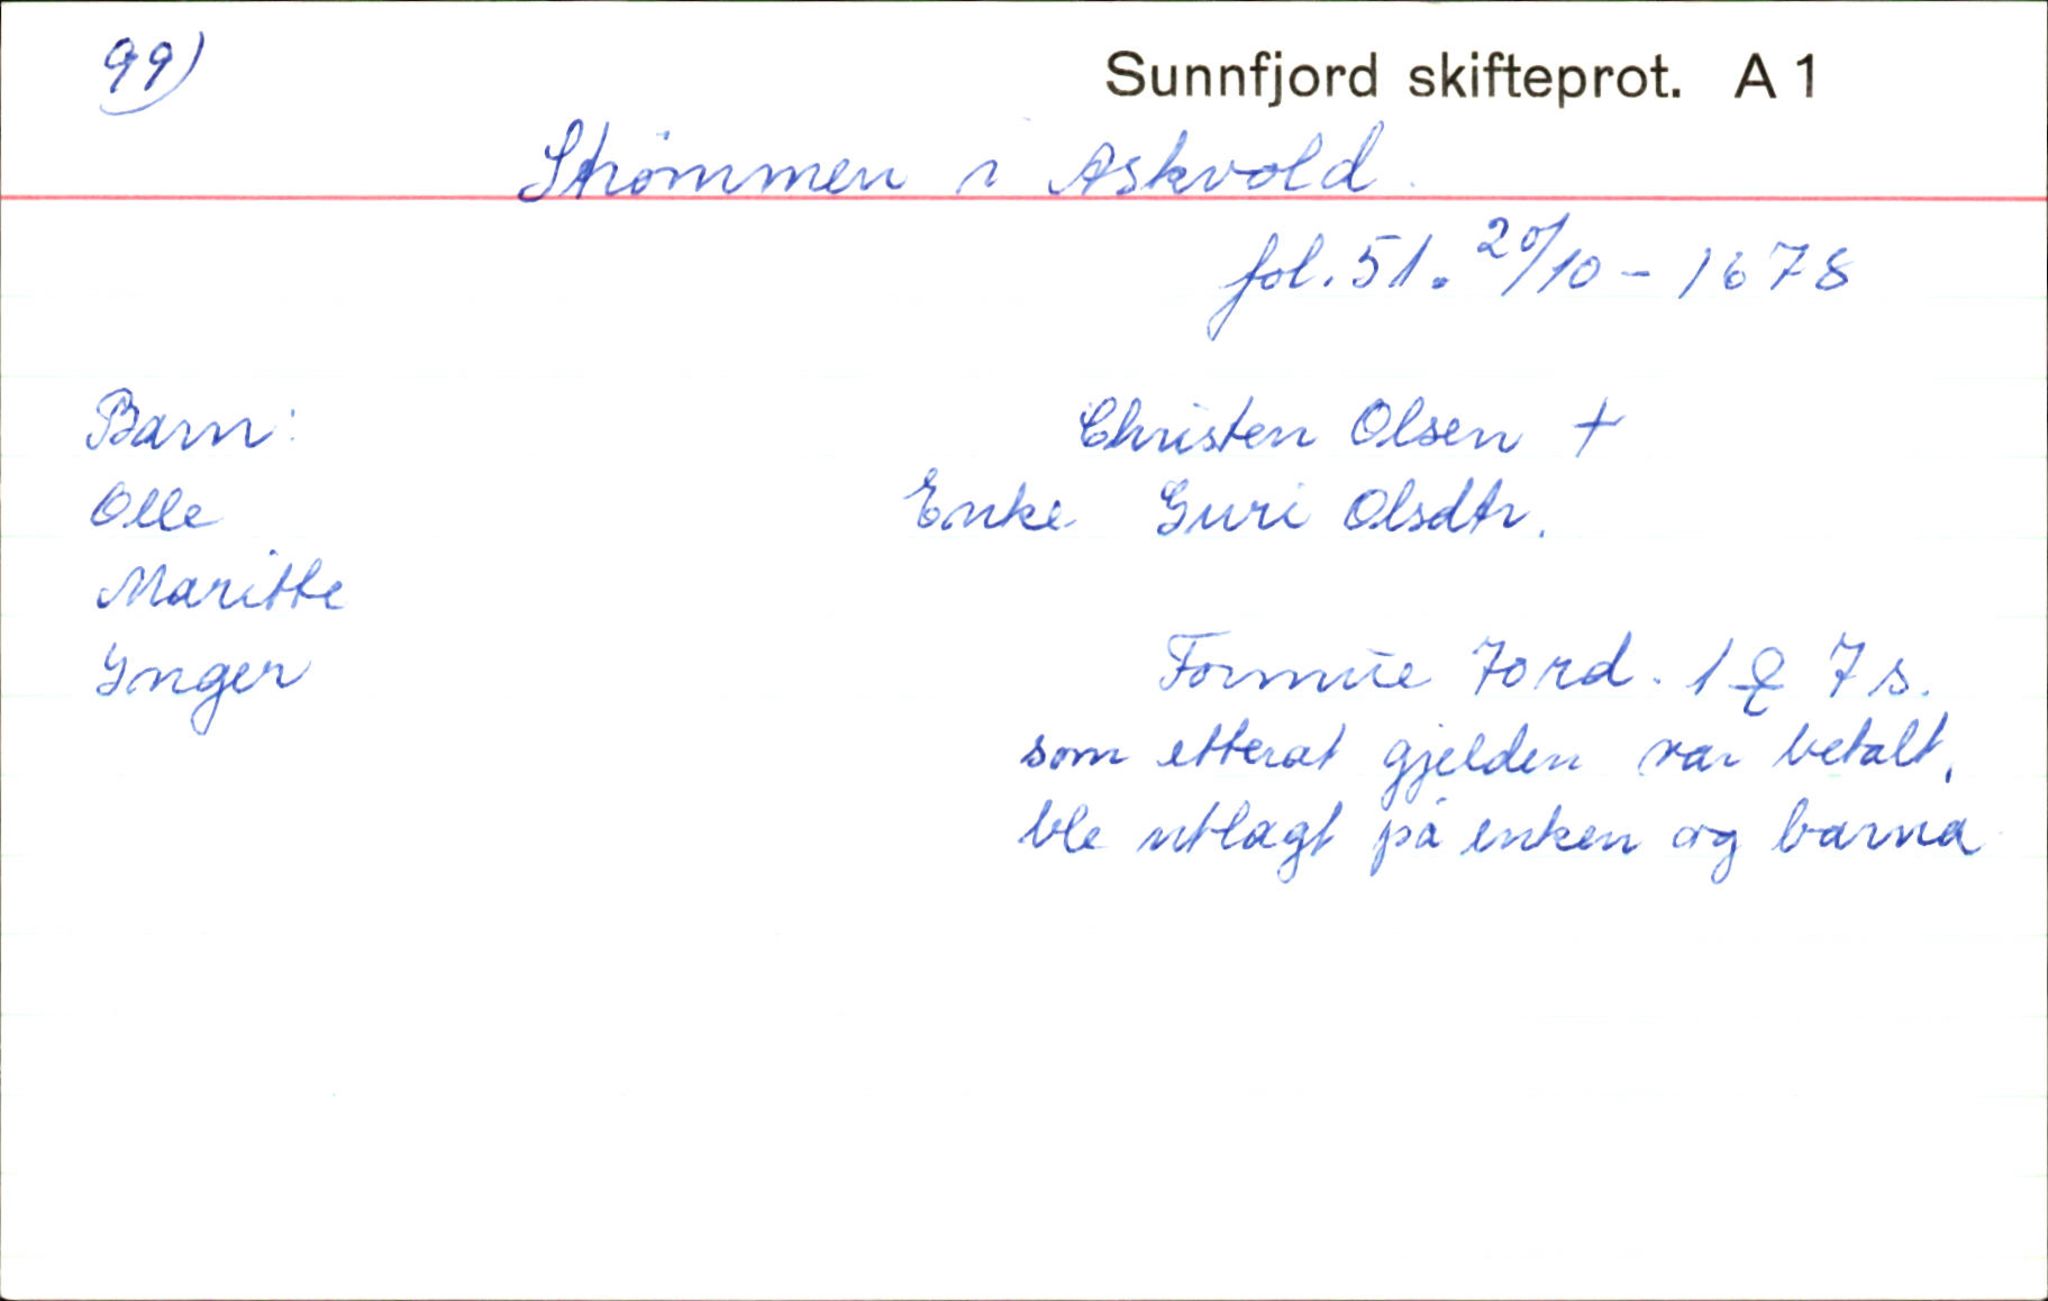 99)
Sunnfjord skifteprot. A 1
Strömmen i Askvold.
fol. 51. 20/10 - 1678
Barn:
Christen Olsen +
Olle
Enke Guri Olsdtr.
Maritte
Ynger
Formue 70 rd. 1 7 s.
som etterat gjelden var betalt,
ble utlagt på enken og barna